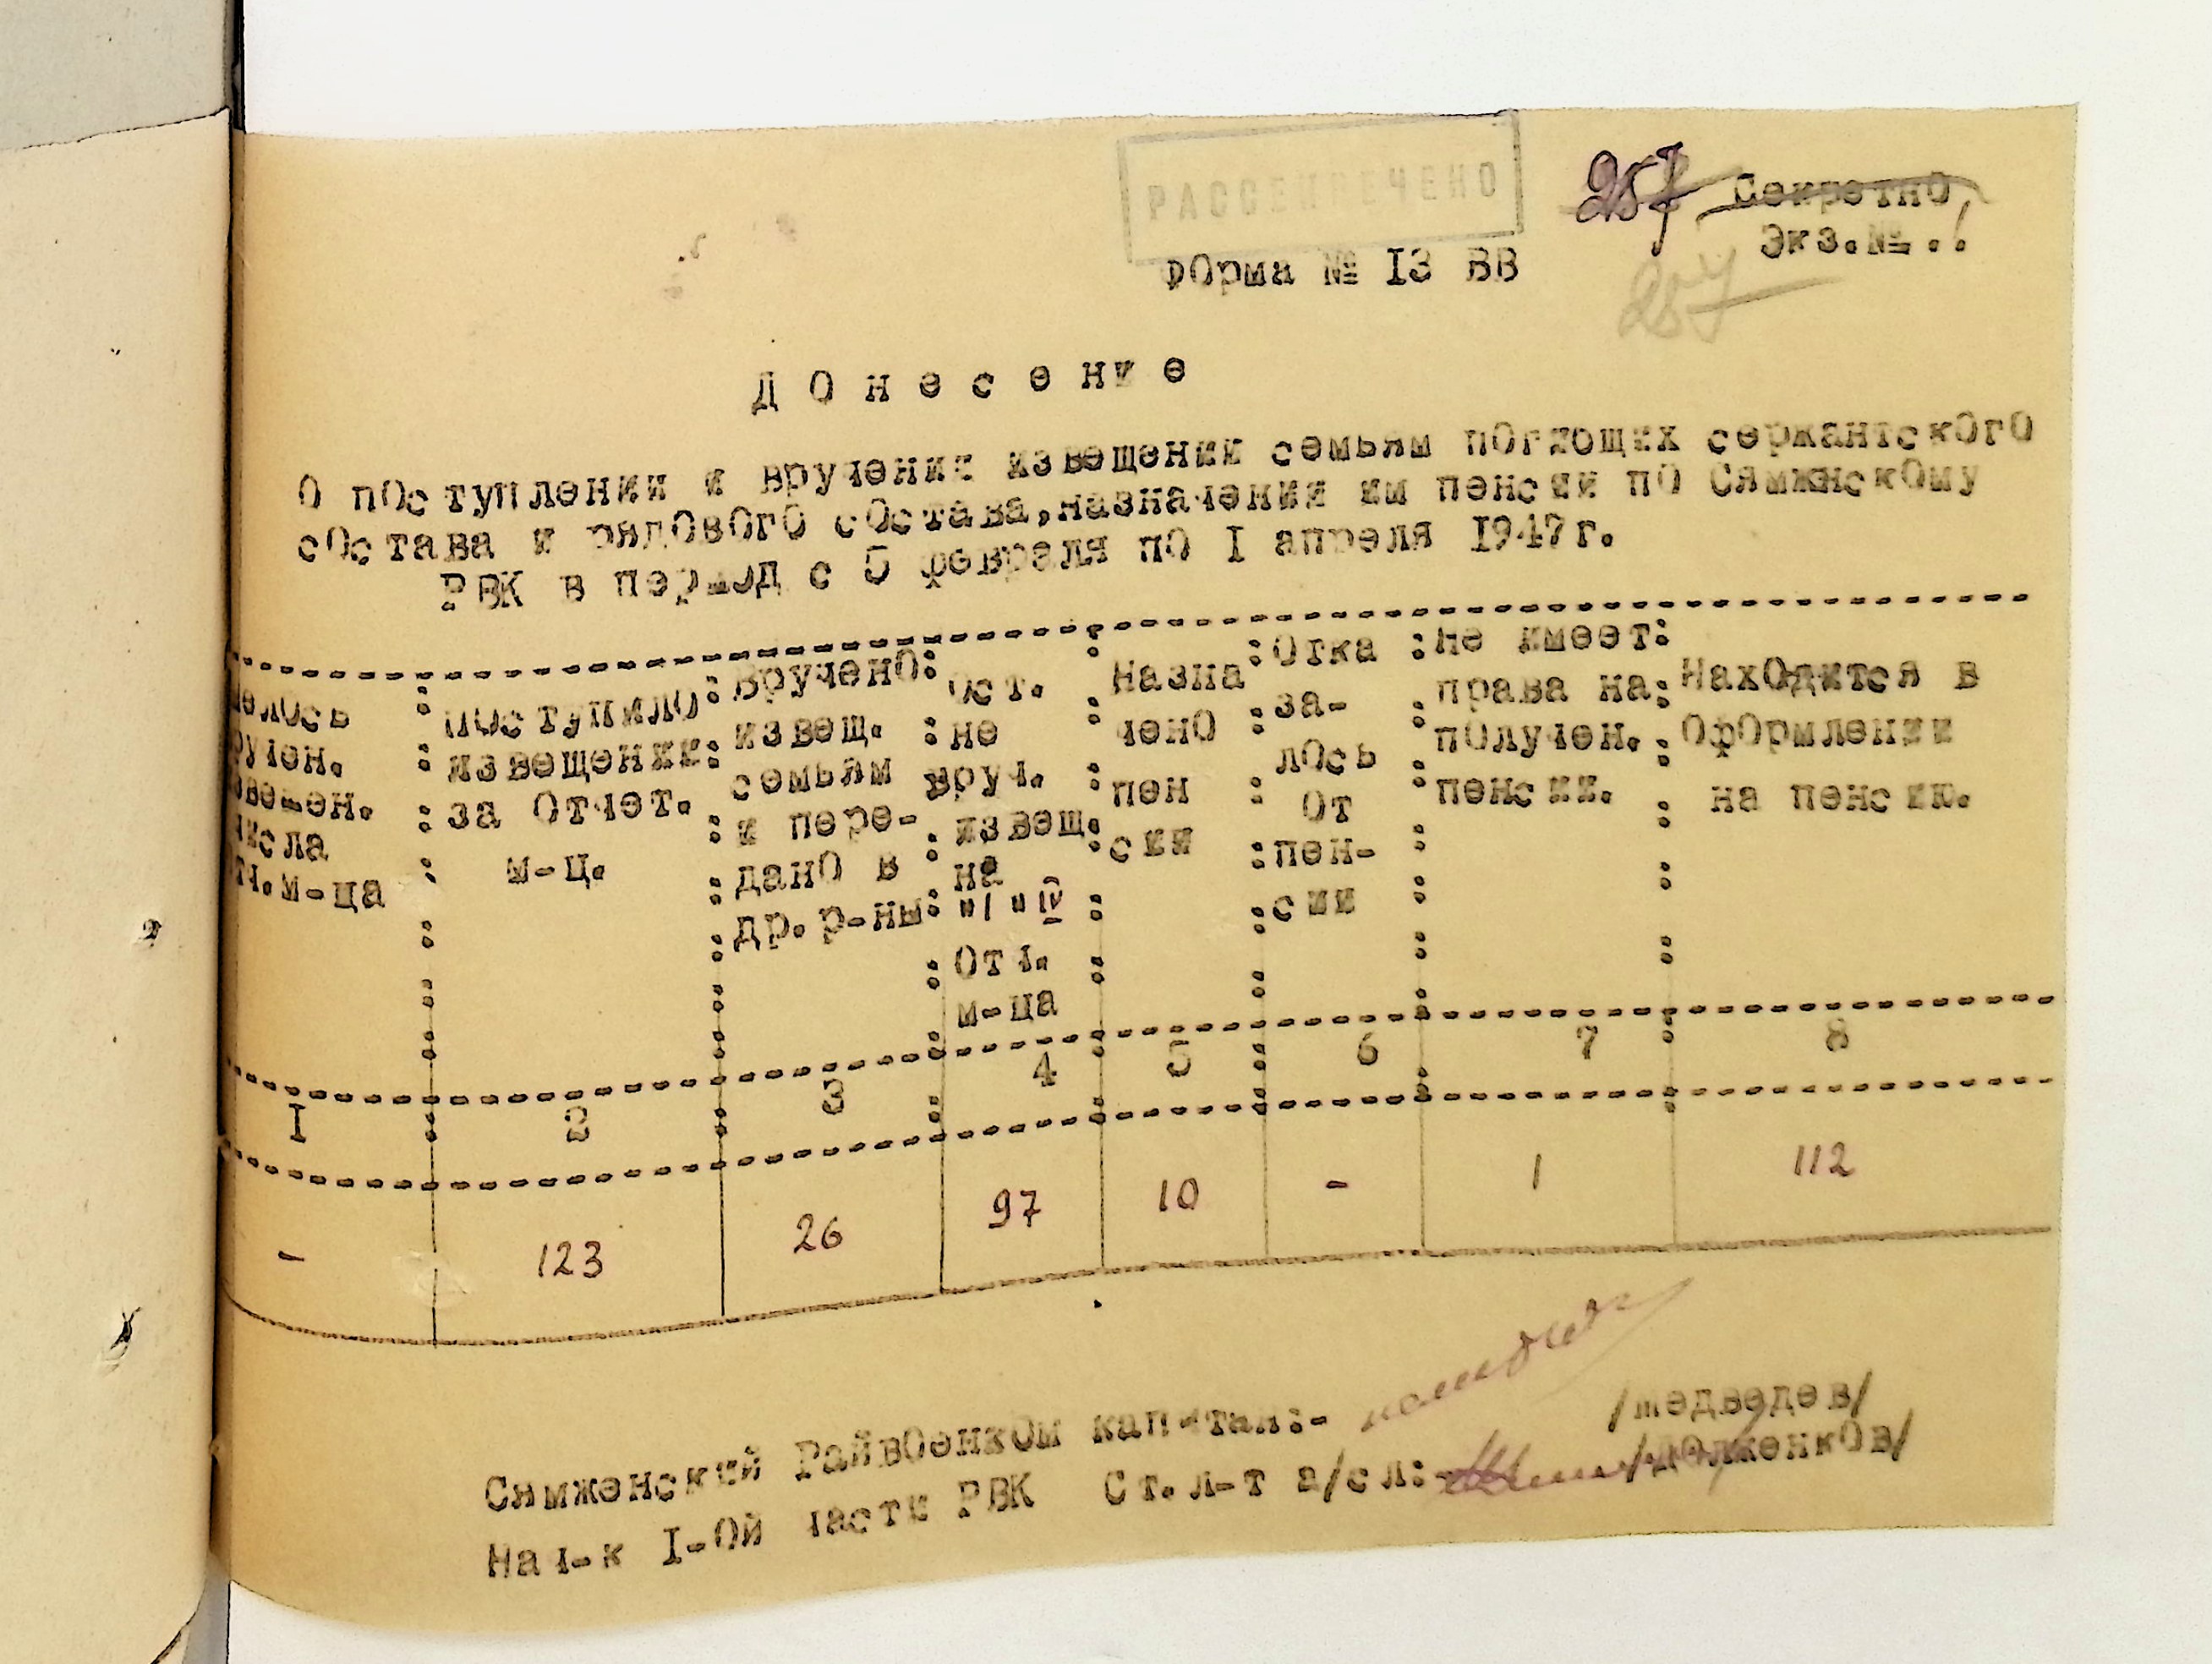 РАССЕКРЕЧЕНО
257 Секретно
Экз.№ .1.
Форма № I3 ВВ
257
Донесение
О поступлении и вручении извещении семьям погиющих сержантского
состава и рядового состава,назначении им пенсии по Сямженскому
РВК в период с 5 февраля по I апреля 1947г.
поступило извещении за отчет. м-ц.
Вручено извещ. семьям и пере- дано в др. р-ны
ост. не вруч. извещ. на "1" IV отч. м-ца
Назна чено пен сии
Отка за- лось от пен- сии
Не имеет права на получен. пенсии.
Находится в оформлении на пенсию.
I 2 3 4 5 6 7 8
- 123 26 97 10 - 1 112
Сямженский Райвоенком капитан:- /медведев/
Нач-к I-ой части РВК Ст. л-т а/сл: /долженков/